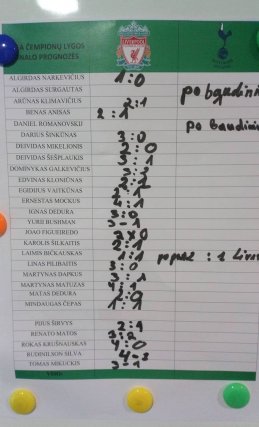 ČEMPIONŲ LYGOS
FINALO PROGNOZĖS
ALGIRDAS NARKEVIČIUS 1:0
ALGIRDAS SURGAUTAS
ARŪNAS KLIMAVIČIUS 2:1
BENAS ANISAS 2:1
DANIEL ROMANOVSKIJ
DARIUS ŠINKŪNAS 3:0
DEIVIDAS MIKELIONIS 2:0
DEIVIDAS ŠEŠPLAUKIS 3:1
DOMINYKAS GALKEVIČIUS
EDVINAS KLONIŪNAS 2:2
EGIDIJUS VAITKŪNAS 2:1
ERNESTAS MOCKUS 4:1
IGNAS DEDURA 3:0
YURII BUSHMAN 3:1
JOAO FIGUEIREDO
KAROLIS ŠILKAITIS 2:1
LAIMIS BIČKAUSKAS 1:1
LINAS PILIBAITIS 3:0
MARTYNAS DAPKUS 3:1
MARTYNAS MATUZAS 4:1
MATAS DEDURA
MINDAUGAS ČEPAS
PIJUS ŠIRVYS 2:1
RENATO MATOS 3:2
ROKAS KRUŠNAUSKAS 4:0
RUDINILSON SILVA 4-2
TOMAS MIKUCKIS 3-1